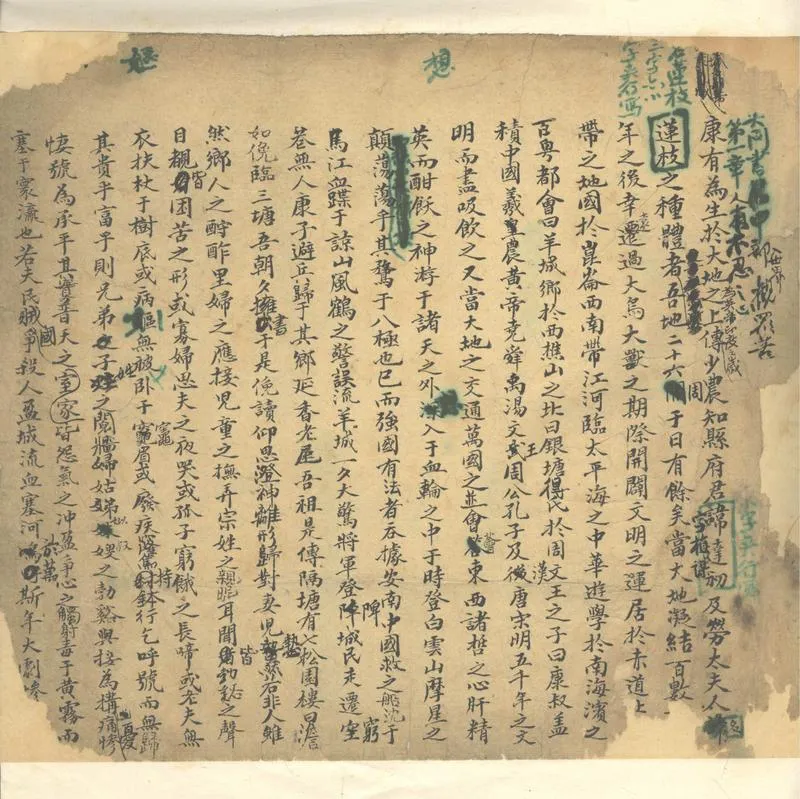 大同書甲部
第一章人有不忍之心
康有為生於大地之上傳少農知縣府君諱達初及勞太夫人
蓮枝之種體者吾地二十六周于日有餘矣當大地凝結百數
年之後幸遷過大鳥大獸之期際開闢文明之運居於赤道上
帶之地國於崑崙西南帶江河臨太平海之中華遊學於南海濱之
百粵都會曰羊城鄉於西樵山之北曰銀塘得氏於周文王之子曰康叔盖
積中國羲皇農黃帝堯舜禹湯文王周公孔子及漢唐宋明五千年之文
明而盡吸飲之又當大地之交通萬國之並會薈東西諸哲之心肝精
英而酣飫之神游于諸天之外入于血輪之中于時登白雲山摩星之
顛蕩蕩乎其騖于八極也已而強國有法者吞據安南中國救之船沈于
馬江血蹀于諒山風鶴之警誤流羊城一夕大驚將軍登陴城民走遷空
巷無人康子避兵歸于其鄉延香老屋吾祖是傳隔塘有七松園樓曰澹
如俛臨三塘吾朝夕擁書于是俛讀仰思澄神離形歸對妻兒熱然若非人雖
然鄉人之酬酢里婦之應接兒童之撫弄宗姓之親昵耳聞皆勃谿之聲
目覩皆困苦之形或寡婦思夫之夜哭或孫子窮餓之長啼或老夫無
衣扶杖于樹底或病嫗無被卧于竈眉或廢疾癃篤持鉢行乞呼號而無歸
其貴乎富乎則兄弟子姪之鬩牆婦姑娣姒叔嫂之勃谿與接為搆痛慘
悽號為承平其實普天之家室皆怨氣之冲盈爭心之觸射毒于黃霧而
塞于寰瀛也若夫民賊爭國殺人盈城流血塞河於萬斯年大劇慘